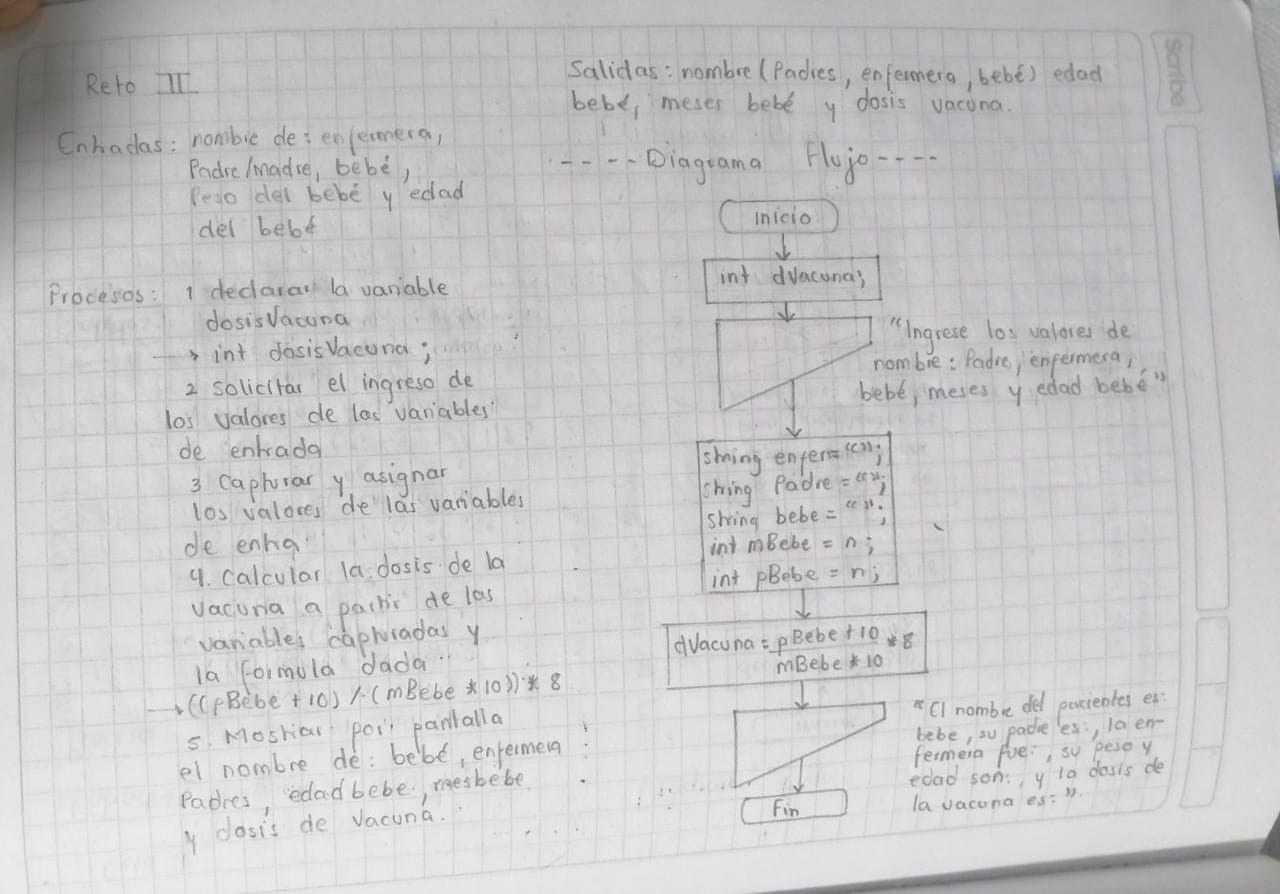 Reto II
Entradas: nombre de: enfermera,
Padre/madre, bebé,
Peso del bebé y edad
del bebé
Procesos: 1 declarar la variable
dosisVacuna
→ int dosisVacuna;
2 solicitar el ingreso de
los valores de las variables
de entrada
3 Capturar y asignar
los valores de las variables
de entra
4. Calcular la dosis de la
vacuna a partir de las
variables capturadas y
la formula dada
→ ((pBebe + 10) / (mBebe * 10)) * 8
5. Mostrar por pantalla
el nombre de: bebé, enfermera
Padres, edad bebe, mesbebe
y dosis de vacuna.
Salidas: nombre (Padres, enfermera, bebé) edad
bebé, meses bebé y dosis vacuna.
----Diagrama Flujo----
Inicio
int dVacuna;
"Ingrese los valores de
nombre: Padre, enfermera,
bebé, meses y edad bebé"
string enfer="";
string Padre = "";
string bebe = "";
int mBebe = n;
int pBebe = n;
dVacuna = pBebe + 10 * 8
mBebe * 10
"El nombre del pacientes es:
bebe, su padre es:, la en-
fermera fue:, su peso y
edad son:, y la dosis de
la vacuna es:".
Fin
Scribe